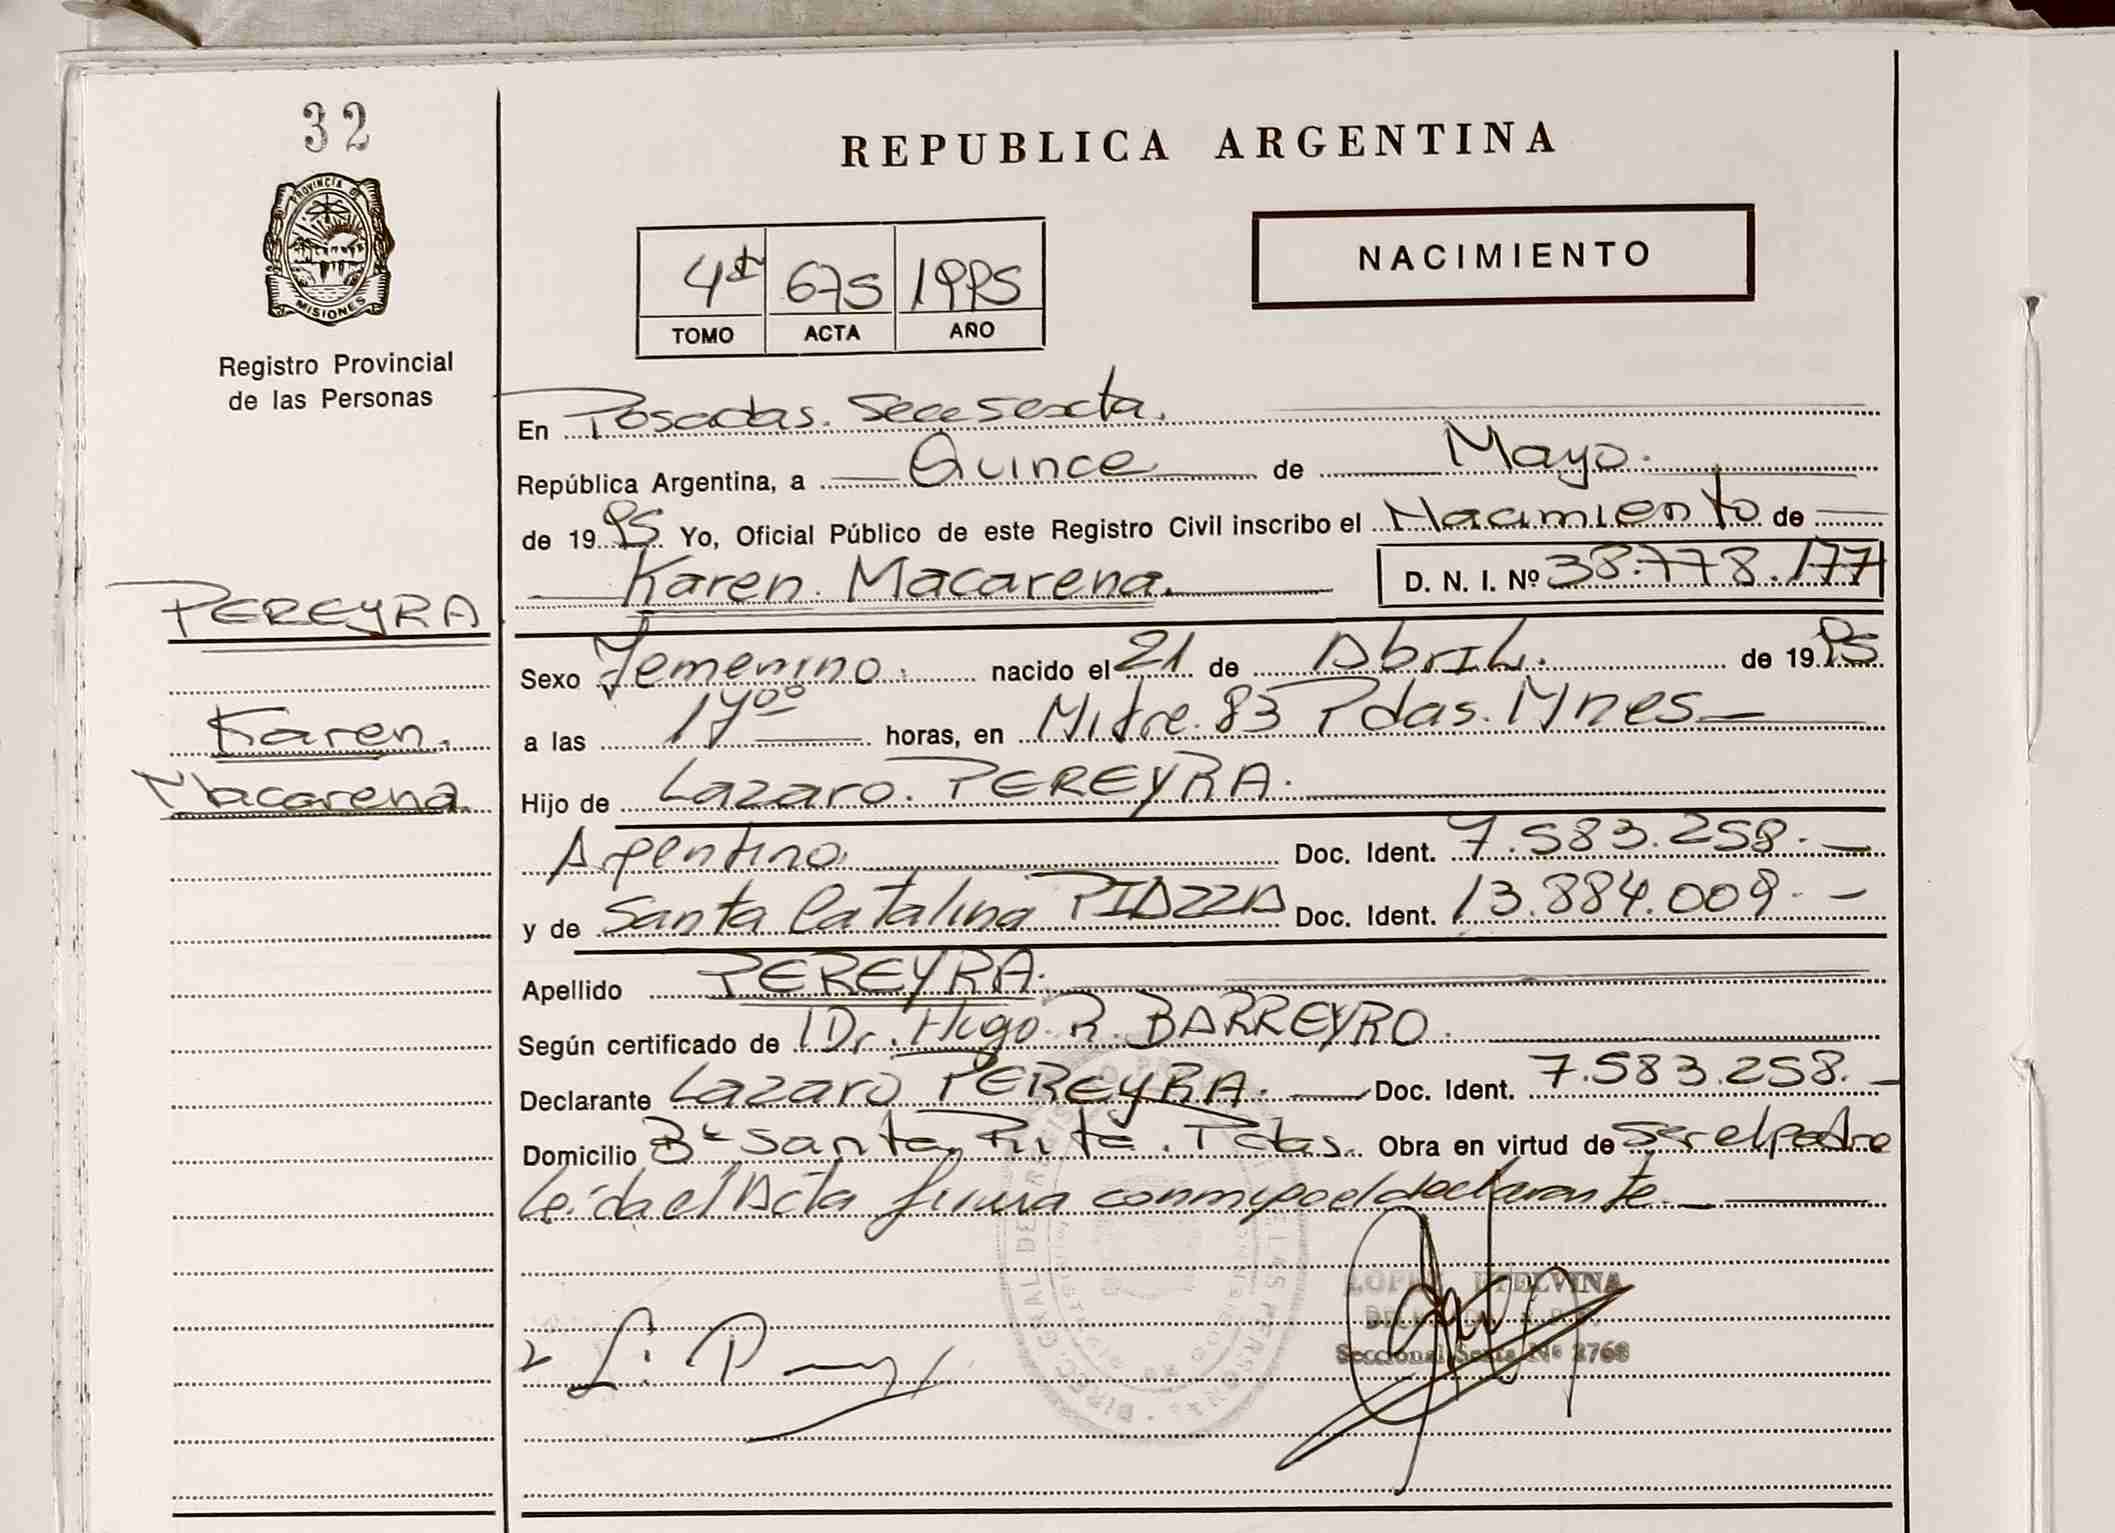 32
PROVINCIA DE
MISIONES
Registro Provincial
de las Personas
PEREYRA
Karen.
Macarena
REPUBLICA ARGENTINA
NACIMIENTO
4t 675 1995
TOMO ACTA AÑO
En Posadas. Secc Sexta.
República Argentina, a Quince de Mayo.
de 1995 Yo, Oficial Público de este Registro Civil inscribo el Nacimiento de
Karen. Macarena. D. N. I. Nº 38.778.177
Sexo Femenino. nacido el 21 de Abril. de 1995
a las 17ºº horas, en Mitre. 83 Pdas. Mnes
Hijo de Lazaro. PEREYRA.
Argentino. Doc. Ident. 7.583.258.
y de Santa Catalina PIAZZA Doc. Ident. 13.884.009.
Apellido PEREYRA.
Según certificado de Dr. Hugo. R. BARREYRO.
Declarante Lazaro PEREYRA. Doc. Ident. 7.583.258.
Domicilio Bº Santa Rita. Pdas. Obra en virtud de ser el padre
Leida el Acta firma conmigo el declarante.
LOPEZ ETELVINA
Seccional Sexta Nº 2768